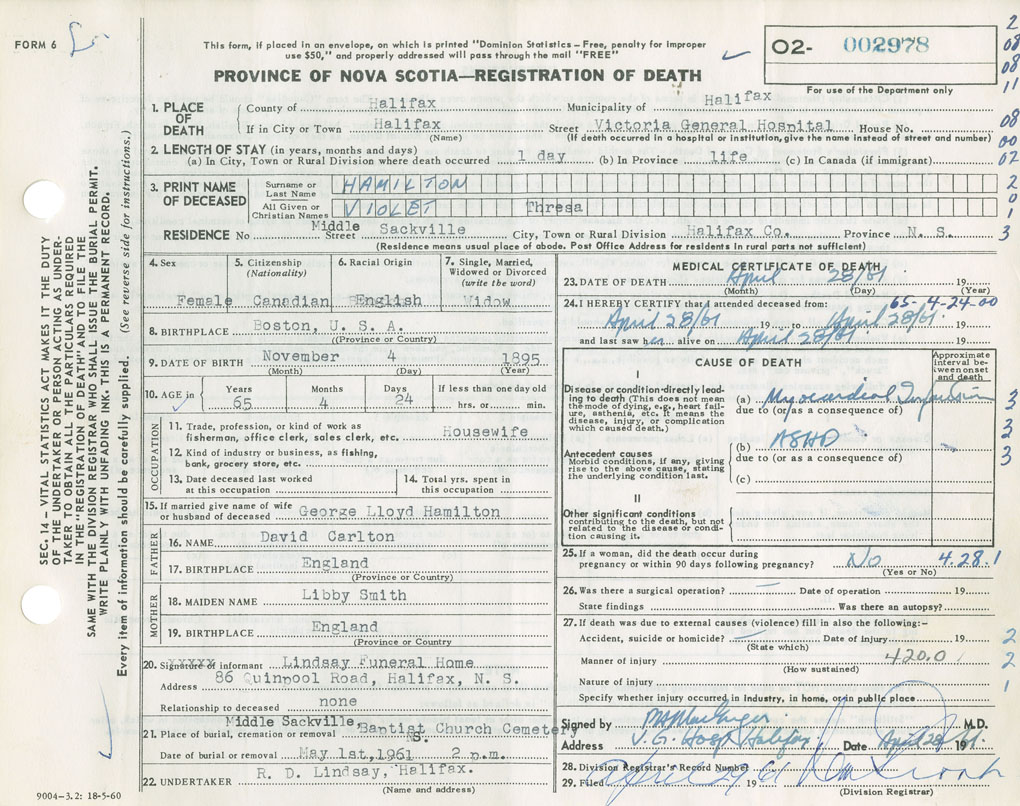 FORM 6
This form, if placed in an envelope, on which is printed "Dominion Statistics – Free, penalty for improper
use $50," and properly addressed will pass through the mail "FREE"
O2- 002978
For use of the Department only
PROVINCE OF NOVA SCOTIA—REGISTRATION OF DEATH
2
08
08
11
08
00
02
2
0
1
3
SEC. 14 – VITAL STATISTICS ACT MAKES IT THE DUTY
OF THE UNDERTAKER OR PERSON ACTING AS UNDER-
TAKER TO OBTAIN ALL THE PARTICULARS REQUIRED
IN THE "REGISTRATION OF DEATH" AND TO FILE THE
SAME WITH THE DIVISION REGISTRAR WHO SHALL ISSUE THE BURIAL PERMIT.
WRITE PLAINLY WITH UNFADING INK. THIS IS A PERMANENT RECORD.
Every item of information should be carefully supplied. (See reverse side for instructions.)
1. PLACE OF DEATH
County of Halifax Municipality of Halifax
If in City or Town Halifax Street Victoria General Hospital House No.
(Name) (If death occurred in a hospital or institution, give its name instead of street and number)
2. LENGTH OF STAY (in years, months and days)
(a) In City, Town or Rural Division where death occurred 1 day (b) In Province life (c) In Canada (if immigrant)
3. PRINT NAME OF DECEASED
Surname or Last Name HAMILTON
All Given or Christian Names VIOLET Thresa
RESIDENCE No Street Middle Sackville City, Town or Rural Division Halifax Co. Province N. S.
(Residence means usual place of abode. Post Office Address for residents in rural parts not sufficient)
4. Sex Female
5. Citizenship (Nationality) Canadian
6. Racial Origin English
7. Single, Married, Widowed or Divorced (write the word) Widow
8. BIRTHPLACE Boston, U. S. A.
(Province or Country)
9. DATE OF BIRTH November 4 1895
(Month) (Day) (Year)
10. AGE in Years 65 Months 4 Days 24 If less than one day old hrs. or min.
OCCUPATION
11. Trade, profession, or kind of work as
fisherman, office clerk, sales clerk, etc. Housewife
12. Kind of industry or business, as fishing,
bank, grocery store, etc.
13. Date deceased last worked at this occupation
14. Total yrs. spent in this occupation
15. If married give name of wife
or husband of deceased George Lloyd Hamilton
FATHER
16. NAME David Carlton
17. BIRTHPLACE England
(Province or Country)
MOTHER
18. MAIDEN NAME Libby Smith
19. BIRTHPLACE England
(Province or Country)
20. Signature of informant Lindsay Funeral Home
Address 86 Quinpool Road, Halifax, N. S.
Relationship to deceased none
21. Place of burial, cremation or removal Middle Sackville, Baptist Church Cemetery
NS.
Date of burial or removal May 1st,1961 2 p.m.
22. UNDERTAKER R. D. Lindsay, Halifax.
(Name and address)
9004–3.2: 18-5-60
MEDICAL CERTIFICATE OF DEATH
23. DATE OF DEATH April 28/61 19
(Month) (Day) (Year)
24. I HEREBY CERTIFY that I attended deceased from: 65-4-24-00
April 28/61 19 to April 28/61. 19
and last saw her alive on April 28/61 19
CAUSE OF DEATH
Approximate interval between onset and death
I
Disease or condition directly lead-
ing to death (This does not mean
the mode of dying, e.g., heart fail-
ure, asthenia, etc. It means the
disease, injury, or complication
which caused death.)
(a) Myocardial Infarction
due to (or as a consequence of)
(b) ASHD
Antecedent causes
Morbid conditions, if any, giving
rise to the above cause, stating
the underlying condition last.
due to (or as a consequence of)
(c)
3
3
2
3
II
Other significant conditions
contributing to the death, but not
related to the disease or condi-
tion causing it.
25. If a woman, did the death occur during
pregnancy or within 90 days following pregnancy? No 4.28.1
(Yes or No)
26. Was there a surgical operation? — Date of operation 19
State findings Was there an autopsy?
27. If death was due to external causes (violence) fill in also the following:-
Accident, suicide or homicide? — Date of injury 19
(State which)
Manner of injury 420.0
(How sustained)
Nature of injury
Specify whether injury occurred in industry, in home, or in public place
2
2
1
Signed by M.D.
Address V. G. Hosp Halifax Date April 28 1961.
28. Division Registrar's Record Number
29. Filed April 29 61
(Division Registrar)